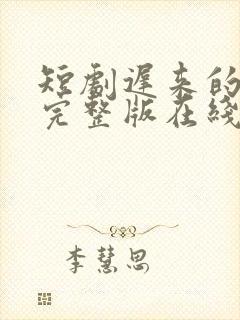 短劇遲來的
完整版在綫
李慧思